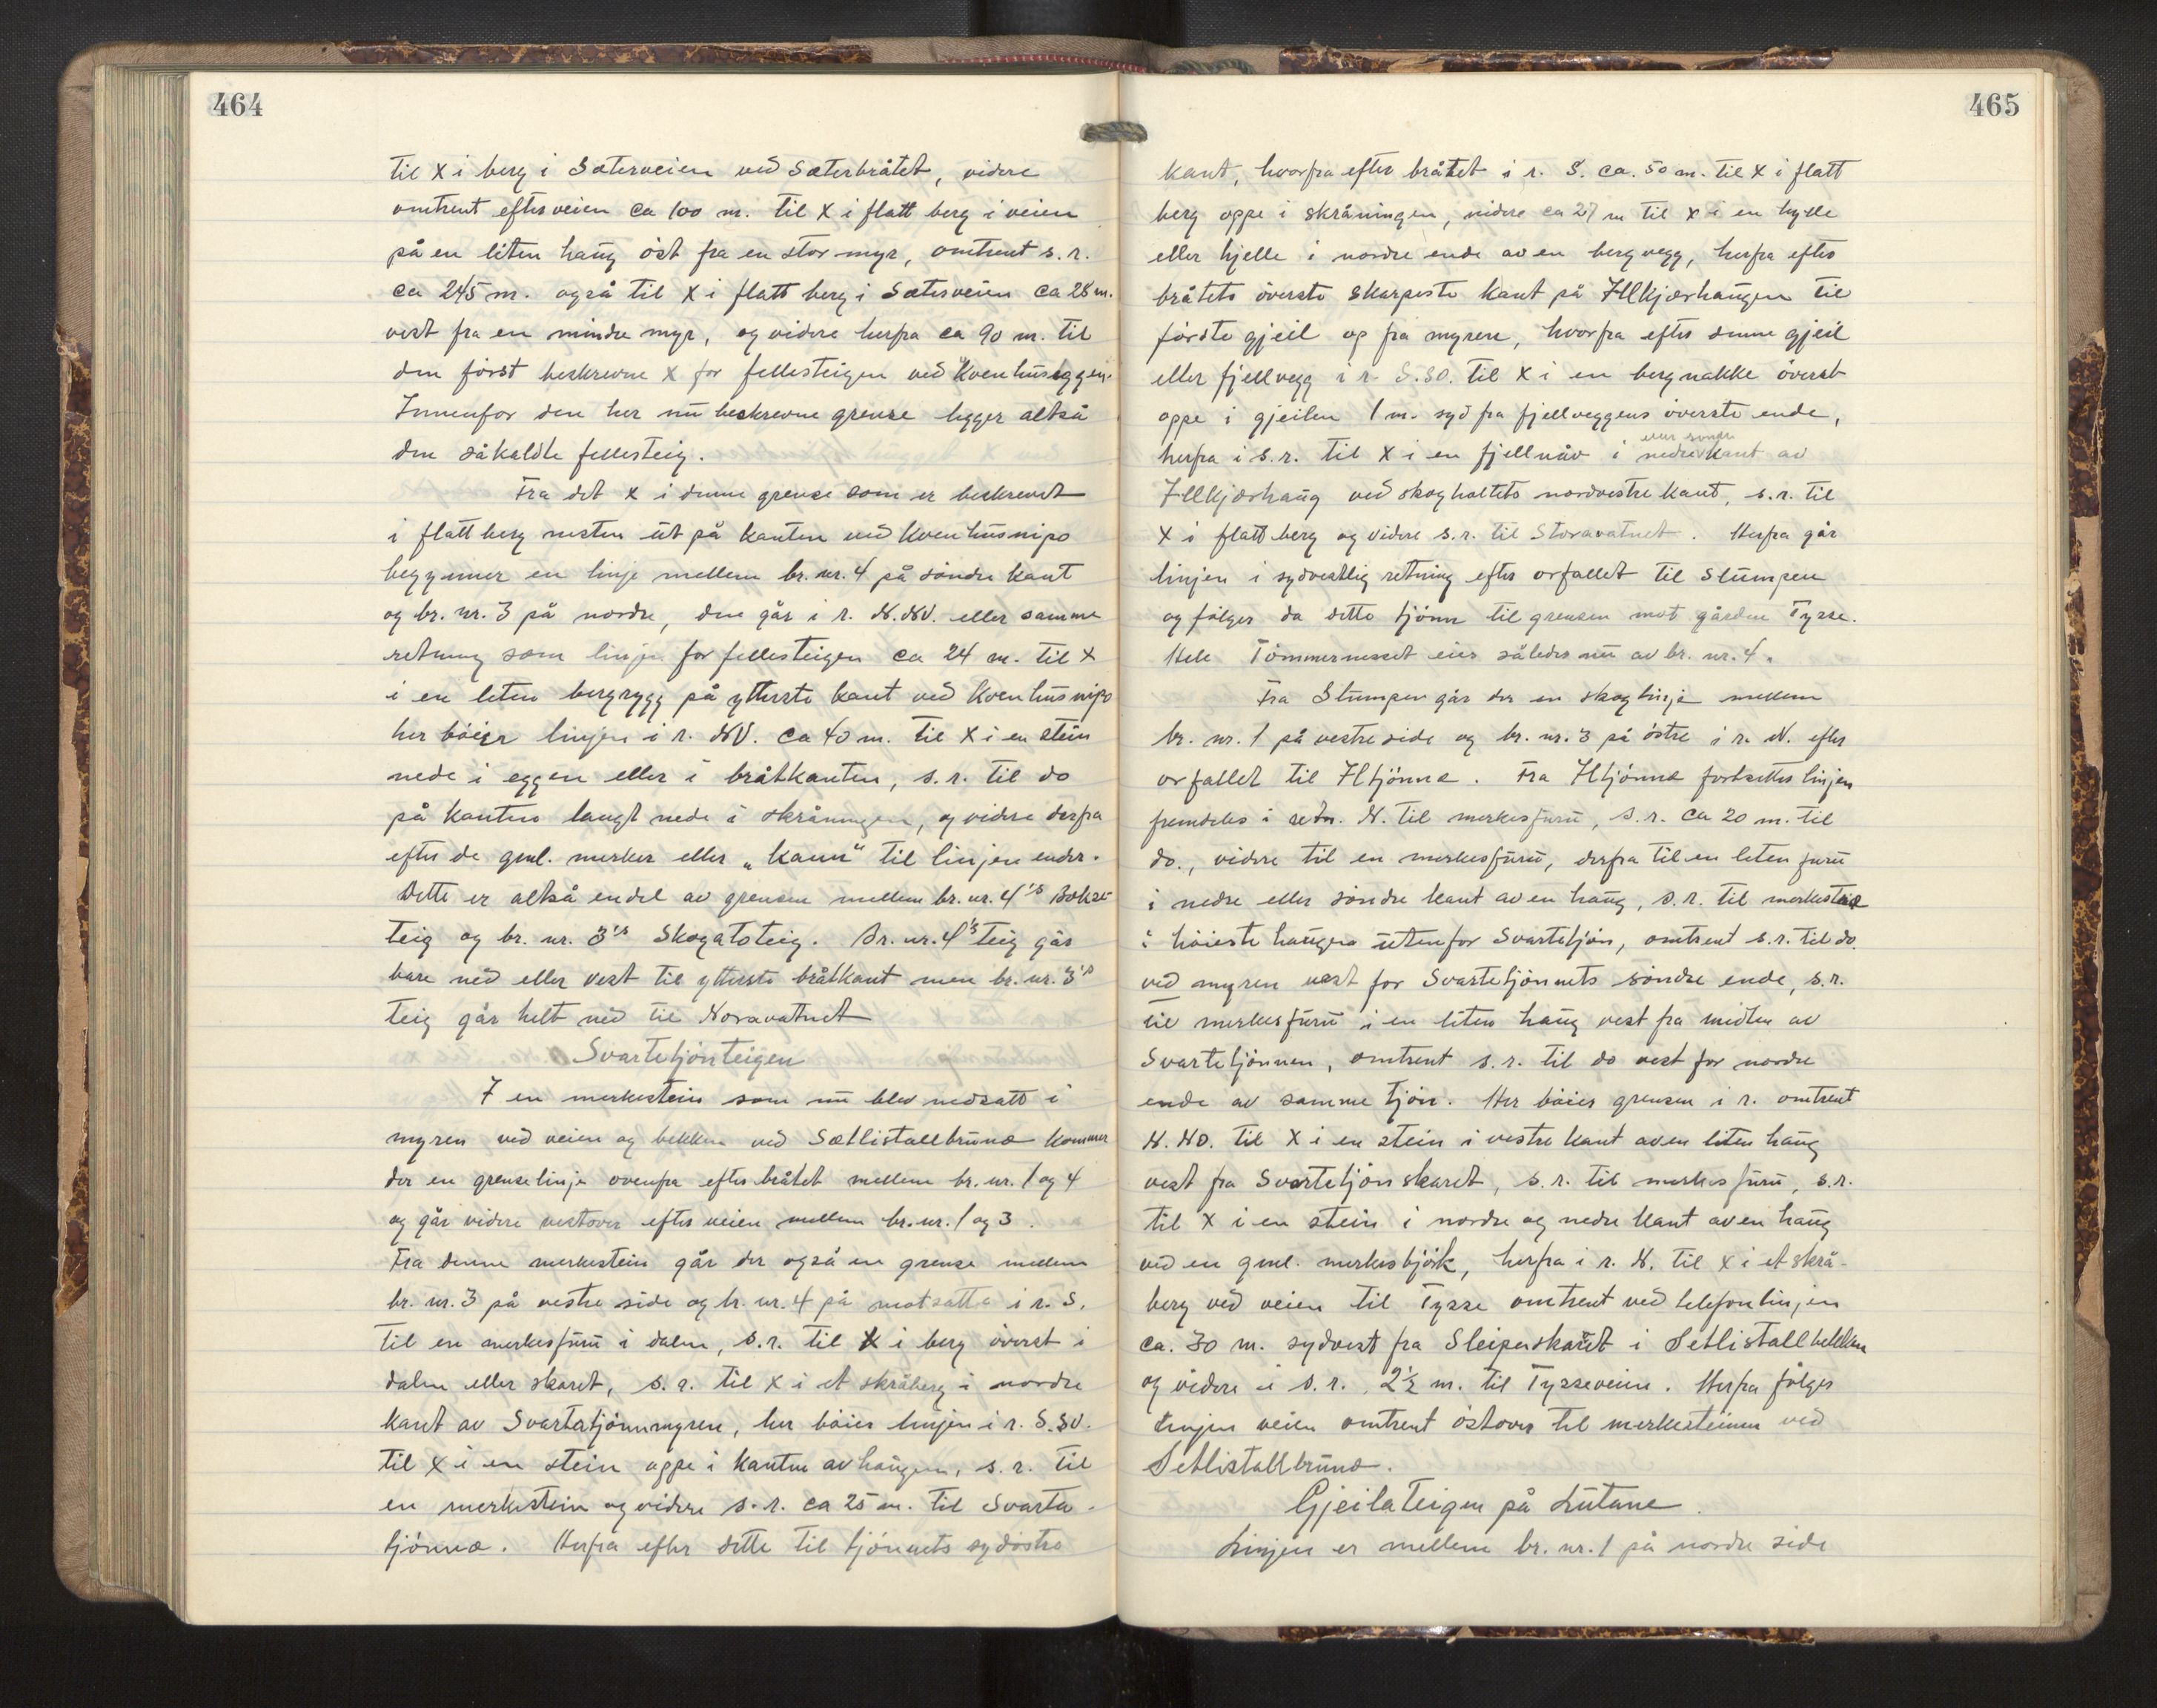 464
til X i berg i Sæterveien ved Sæterbråtet, videre
omtrent efter veien ca 100 m. til X i flatt berg i veien
på en liten haug øst fra en stor myr, omtrent s. r.
ca 245 m. også til X i flatt berg i Sæterveien ca 28 m.
vest fra en mindre myr, og videre herfra ca 90 m. til
den først beskrevne X for fellesteigen ved Kvenhuseggen.
Innenfor den her nu beskrevne grense ligger altså
den såkaldte fellesteig.
Fra det X i denne grense som er beskrevet
i flatt berg nesten ut på kanten ved Kvenhusnipo
begynner en linje mellem br. nr. 4 på søndre kant
og br. nr. 3 på nordre, den går i r. N. NV. eller samme
retning som linjen for fellesteigen ca 24 m. til X
i en liten bergrygg på ytterste kant ved Kvenhusnipo
her bøier linjen i r. NV. ca 40 m. til X i en stein
nede i eggen eller i bråtkanten, s. r. til do
på kanten langt nede i skråningen, og videre derfra
efter de gml. merker eller „kaun“ til linjen ender.
Dette er altså en del av grensen mellem br. nr. 4's
teig og br. nr. 3's Skogatoteig. Br. nr. 4's teig går
bare ned eller vest til ytterste bråtkant men br. nr. 3's
teig går helt ned til Noravatnet
Svartetjönteigen
I en merkestein som nu blev nedsatt i
myren ved veien og bekken ved Sætlistallbruna kommer
der en grenselinje ovenfra efter bråtet mellem br. nr. 1 og 4
og går videre vestover efter veien mellem br. nr. 1 og 3.
Fra denne merkestein går der også en grense mellem
br. nr. 3 på vestre side og br. nr. 4 på motsatte i r. S.
til en merkesfuru i dalen, s. r. til X i berg øverst i
dalen eller skaret, s. r. til X i et skråberg i nordre
kant av Svartatjønnmyren, her bøies linjen i r. S.SV.
til X i en stein oppe i kanten av haugen, s. r. til
en merkestein og videre s. r. ca 25 m. til Svarta-
tjønna. Herfra efter dette til tjønnets sydøstre
465
kant, hvorfra efter bråtet i r. S. ca. 50 m. til X i flatt
berg oppe i skråningen, videre ca 27 m til X i en hylle
eller hjelle i nordre ende av en bergvegg, herfra efter
bråtets øverste skarpeste kant på Illkjærhaugen til
første gjeil op fra myren, hvorfra efter denne gjeil
eller fjellvegg i r. S.SO. til X i en bergnakke øverst
oppe i gjeilen 1 m. syd fra fjellveggens øverste ende,
eller søndre
herfra i s. r. til X i en fjellnåv i nedre kant av
Illkjærhaug ved skogholtets nordvestre kant, s. r. til
X i flatt berg og videre s. r. til Storavatnet. Herfra går
linjen i sydvestlig retning efter orfallet til Stumpen
og følger da dette tjønn til grensen mot gården Tysse.
Hele Tømmernesset eies således nu av br. nr. 4.
Fra Stumpen går der en skoglinje mellem
br. nr. 1 på vestre side og br. nr. 3 på østre i r. N. efter
orfallet til Iltjønna. Fra Iltjønna fortsettes linjen
fremdeles i retn. N. til merkesfuru, s. r. ca 20 m. til
do., videre til en merkesfuru, derfra til en liten furu
i nedre eller søndre kant av en haug, s. r. til
i høieste haugen utenfor Svartetjön, omtrent s. r. til do.
ved myren vest for Svartetjønnets søndre ende, s. r.
til merkesfuru i en liten haug vest fra midten av
Svartetjønnen, omtrent s. r. til do vest for nordre
ende av samme tjön. Her bøies grensen i r. omtrent
N. NO. til X i en stein i vestre kant av en liten haug
vest fra Svartetjönskaret, s. r. til merkesfuru, s. r.
til X i en stein i nordre og nedre kant av en haug
ved en gml. merkesbjörk, herfra i r. N. til X i et skrå-
berg ved veien til Tysse omtrent ved telefonlinjen
ca. 30 m. sydvest fra Sleipeskaret i Setlistallbekken
og videre i s. r. 2½ m. til Tysseveien. Herfra følger
linjen veien omtrent østover til merkesteinen ved
Setlistallbruna.
Gjeilateigen på Lutane.
Linjen er mellem br. nr. 1 på nordre side